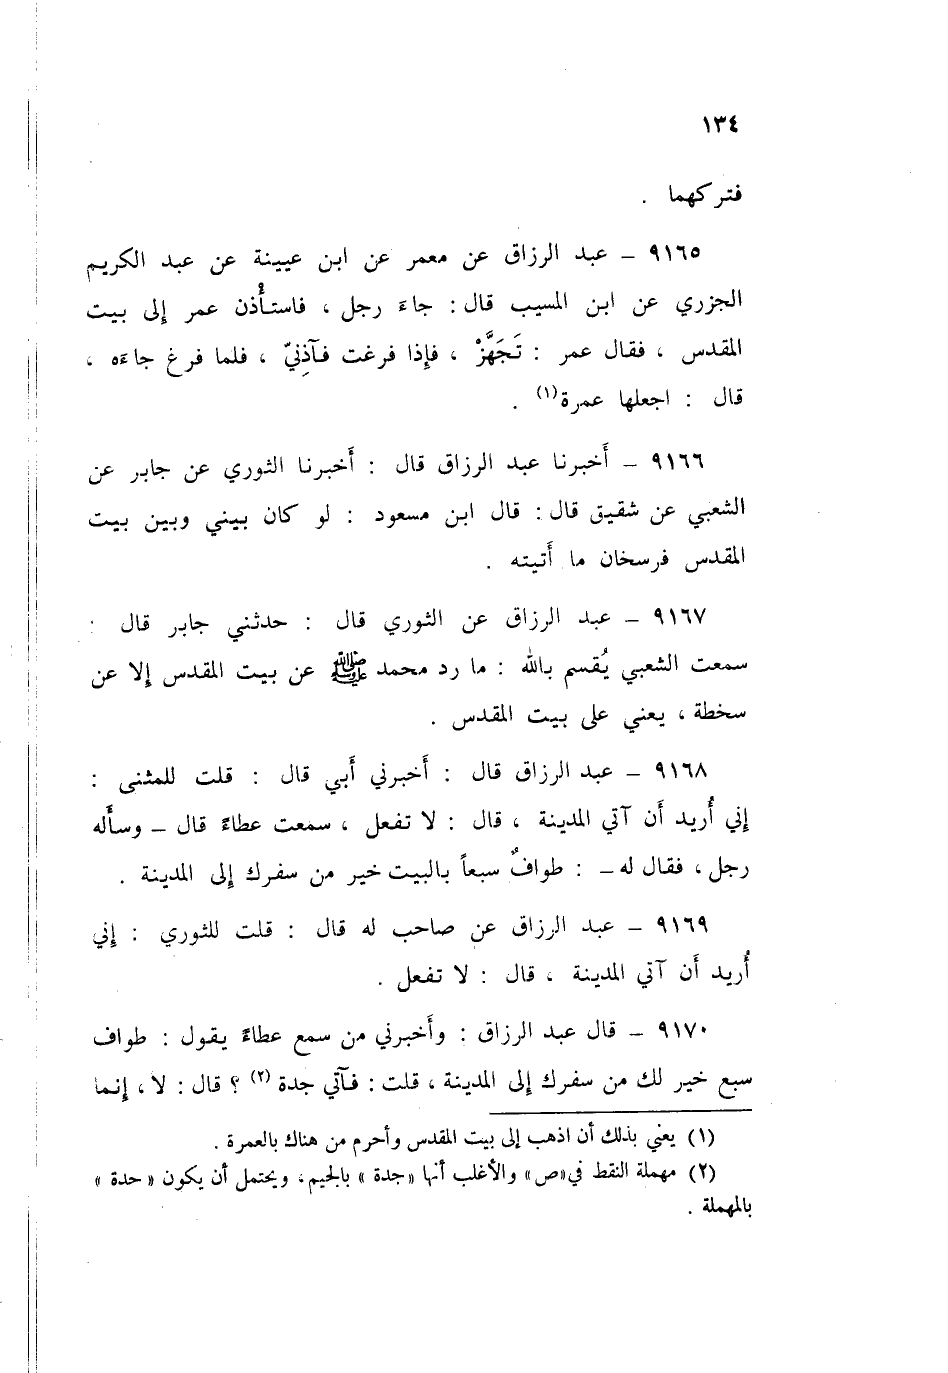 ١٣٤
فتركهما .
٩١٦٥ – عبد الرزاق عن معمر عن ابن عيينة عن عبد الكريم
الجزري عن ابن المسيب قال : جاءَ رجل ، فاستأْذن عمر إلى بيت
المقدس ، فقال عمر : تَجَهَّزْ ، فإذا فرغت فآذِنيّ ، فلما فرغ جاءَه ،
قال : اجعلها عمرة(١) .
٩١٦٦ – أَخبرنا عبد الرزاق قال : أَخبرنا الثوري عن جابر عن
الشعبي عن شقيق قال : قال ابن مسعود : لو كان بيني وبين بيت
المقدس فرسخان ما أَتيته .
٩١٦٧ – عبد الرزاق عن الثوري قال : حدثني جابر قال :
سمعت الشعبي يُقسم بالله : ما رد محمد ﷺ عن بيت المقدس إلا عن
سخطة ، يعني على بيت المقدس .
٩١٦٨ – عبد الرزاق قال : أَخبرني أَبي قال : قلت للمثنى :
إني أُريد أَن آتي المدينة ، قال : لا تفعل ، سمعت عطاءً قال – وسأَله
رجل ، فقال له – : طوافٌ سبعاً بالبيت خير من سفرك إلى المدينة .
٩١٦٩ – عبد الرزاق عن صاحب له قال : قلت للثوري : إني
أُريد أَن آتي المدينة ، قال : لا تفعل .
٩١٧٠ – قال عبد الرزاق : وأَخبرني من سمع عطاءً يقول : طواف
سبع خير لك من سفرك إلى المدينة ، قلت : فآتي جدة (٢) ؟ قال : لا ، إنما
(١) يعني بذلك أن اذهب إلى بيت المقدس وأحرم من هناك بالعمرة .
(٢) مهملة النقط في «ص» والأغلب أنها «جدة» بالجيم، ويحتمل أن يكون «حدة»
بالمهملة .